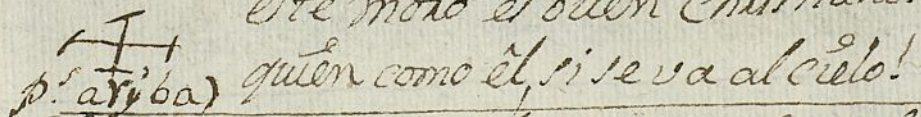 este moro es buen Christiano
p.ª aryba) quien como êl, si se va al cielo!